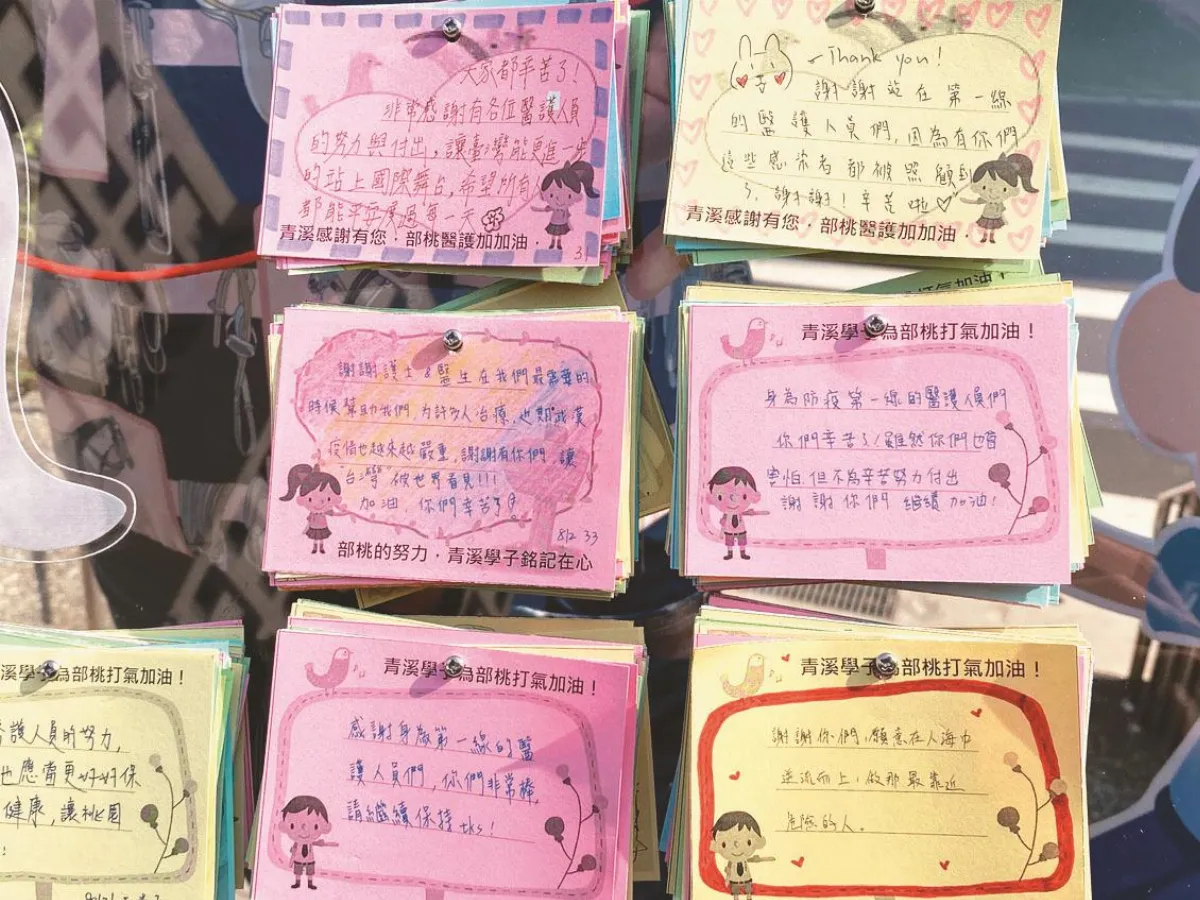 大家都辛苦了!
非常感謝有各位醫護人員
的努力與付出,讓臺灣能更進一步
的站上國際舞台,希望所有
都能平安度過每一天
青溪感謝有您.部桃醫護加加油.
3
~Thank you!
謝謝站在第一線
的醫護人員們,因為有你們
這些感染者都被照顧到
了,謝謝!辛苦啦♡
青溪感謝有您.部桃醫護加加油.
謝謝護士&醫生在我們最需要的
時候幫助我們,為許多人治療,近期武漢
疫情也越來越嚴重,謝謝有你們,讓
台灣被世界看見!!!
加油,你們辛苦了
812 33
部桃的努力,青溪學子銘記在心
打氣加油!
青溪學子為部桃打氣加油!
身為防疫第一線的醫護人員們
你們辛苦了!雖然你們也會
害怕但不為辛苦努力付出
謝謝你們 繼續加油!
溪學子為部桃打氣加油!
護人員的努力,
也應當更好好保
健康,讓桃園
青溪學子為部桃打氣加油!
感謝身為第一線的醫
護人員們,你們非常棒,
請繼續保持tks!
青溪學子為部桃打氣加油!
謝謝你們,願意在人海中
逆流而上,做那最靠近
危險的人。